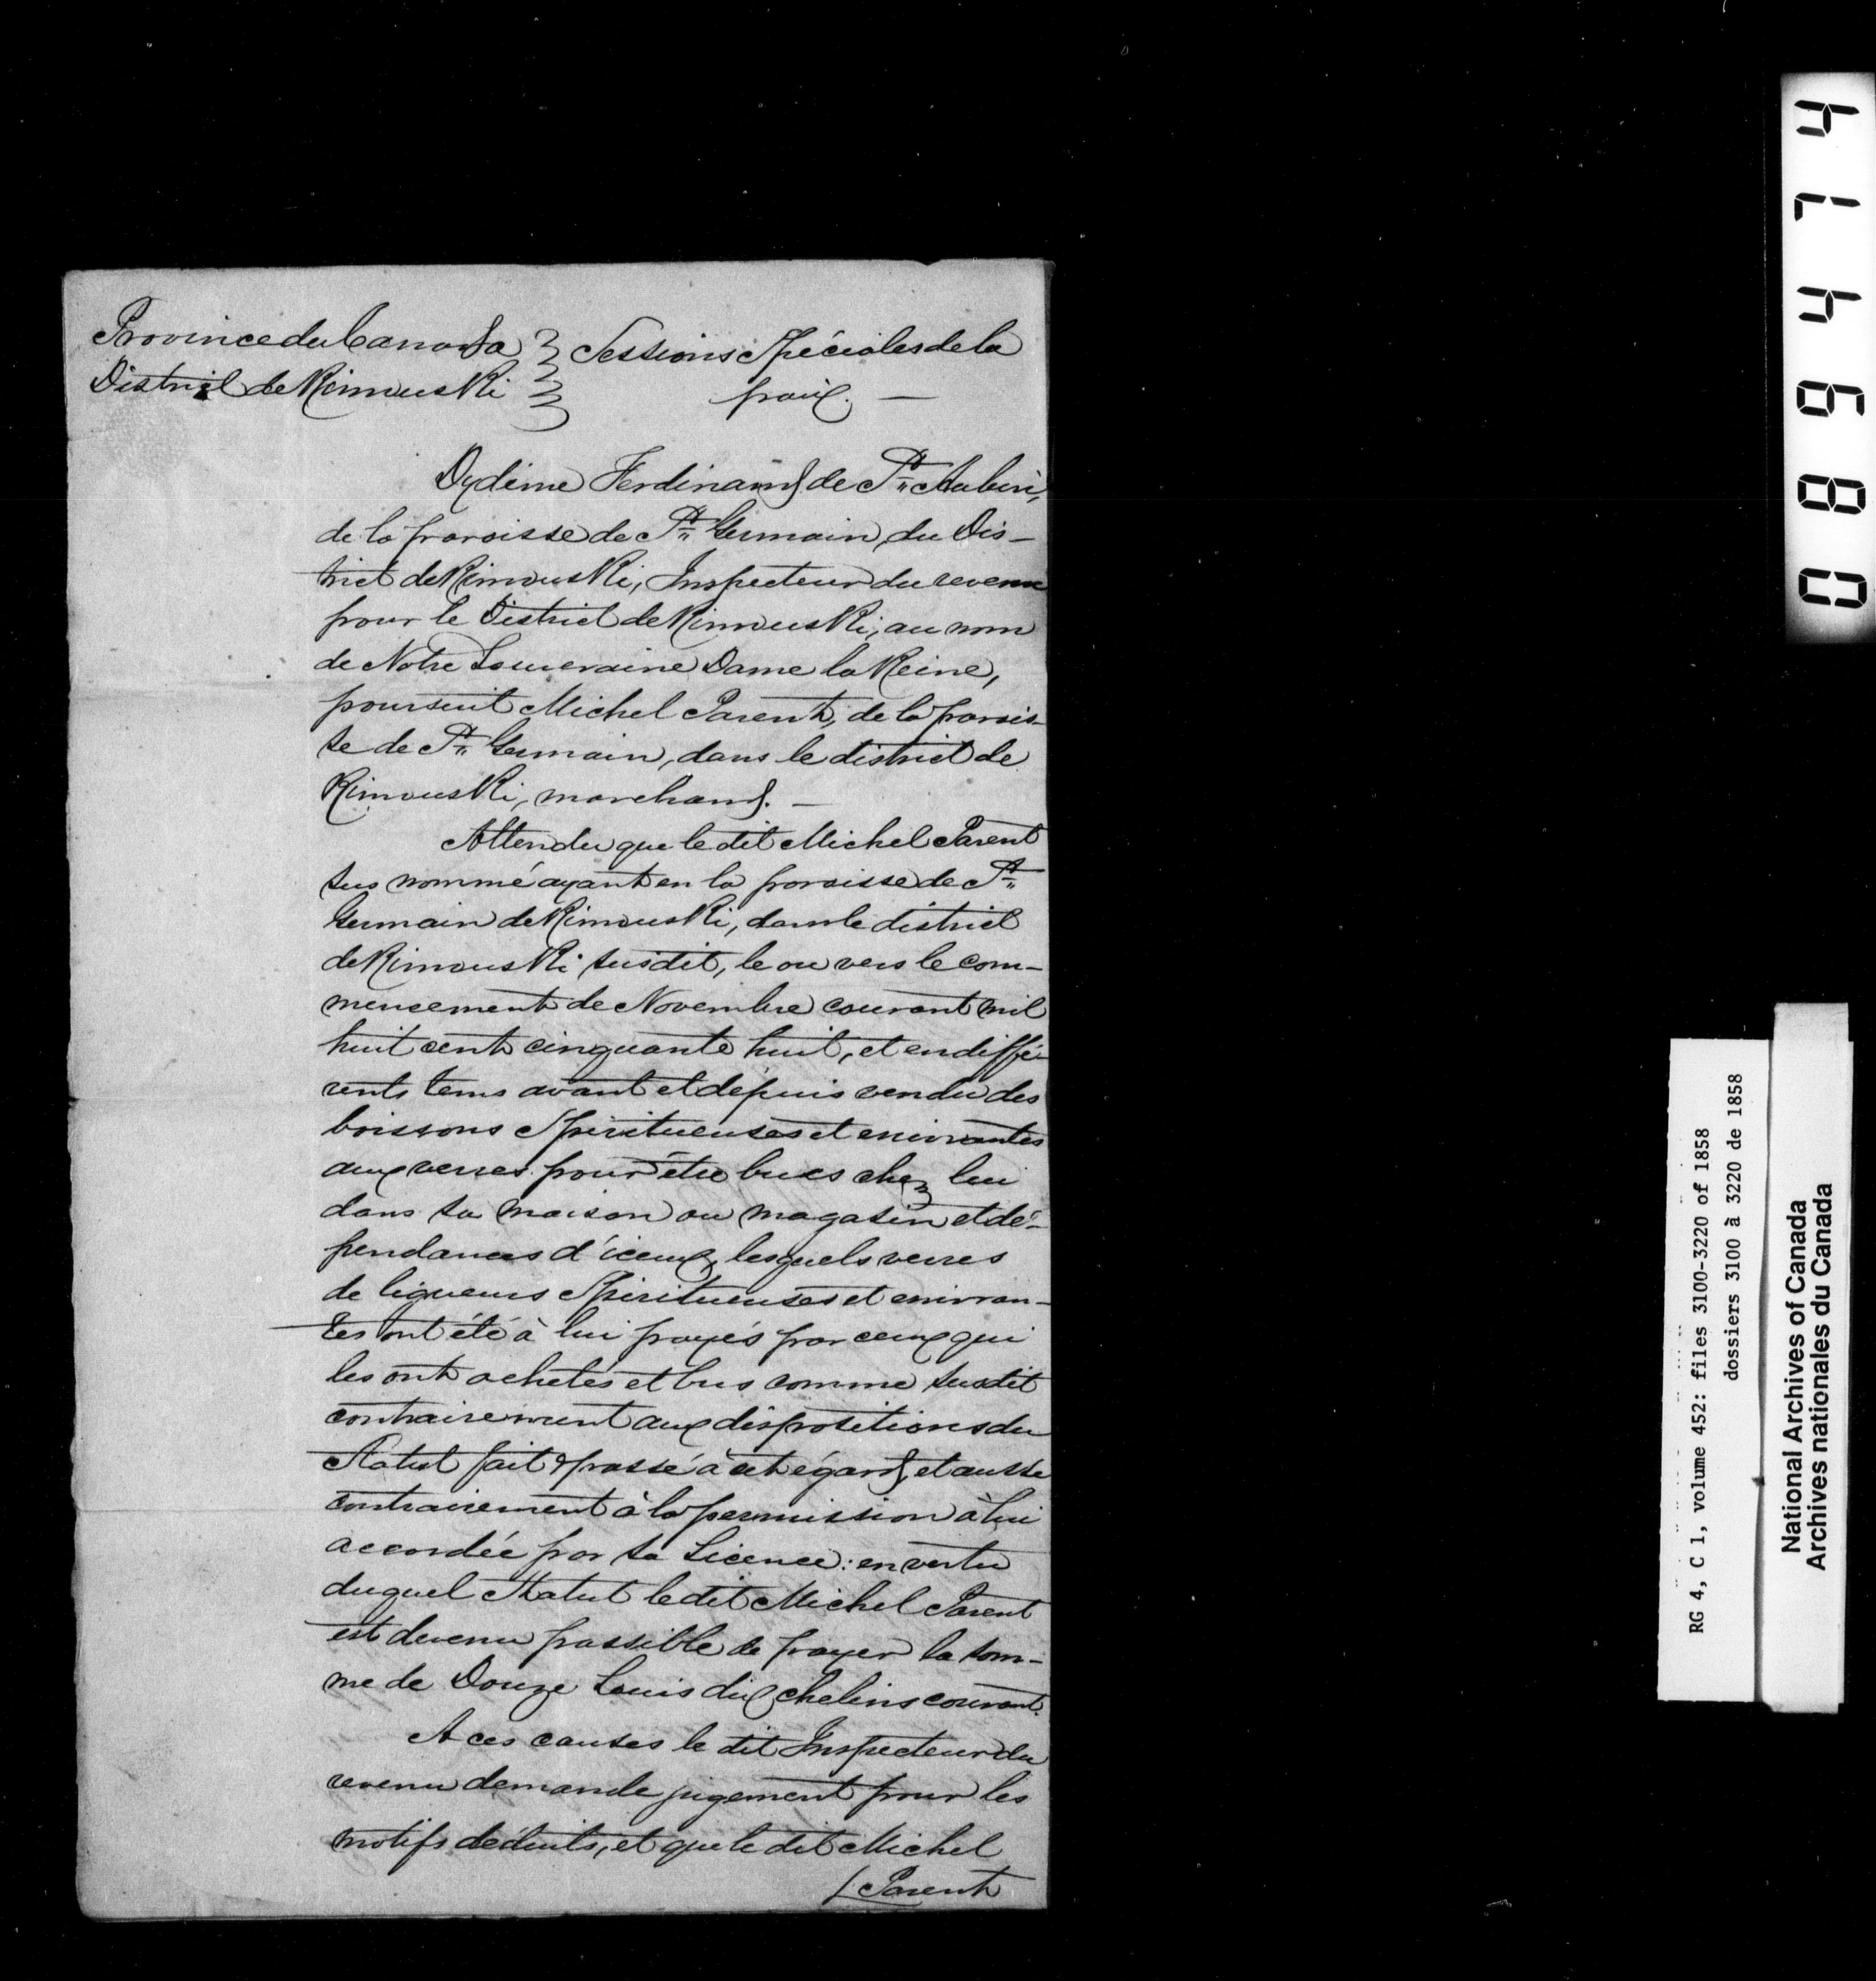 Province du Canada } Sessions Spéciales de la
District de Rimouski } paix. —
Dydime Ferdinand de St. Aubin,
de la paroisse de St. Germain, du Dis-
trict de Rimouski, Inspecteur du revenu
pour le District de Rimouski, au nom
de Notre Souveraine Dame la Reine,
poursuit Michel Parent, de la parois-
se de St. Germain, dans le district de
Rimouski, marchand. —
Attendu que le dit Michel Parent
sus nommé ayant en la paroisse de St.
Germain de Rimouski, dans le district
de Rimouski susdit, le ou vers le com-
mensement de Novembre courant mil
huit cent cinquante huit, et en diffé-
rents tems avant et depuis vendu des
boissons Spiritueuses et enivrantes
aux verres pour être bues chez lui
dans sa maison ou magasin et dé-
pendances d'iceux, lesquels verres
de liqueurs Spiritueuses et enivran-
tes ont été à lui payés par ceux qui
les ont achetés et bus comme susdit
contrairement aux dispositions du
Statut fait & passé à cet égard, et aussi
contrairement à la permission à lui
accordée par sa Licence: en vertu
duquel Statut le dit Michel Parent
est devenu passible de payer la som-
me de Douze Louis dix chelins courant.
A ces causes le dit Inspecteur du
revenu demande jugement pour les
motifs déduits, et que le dit Michel
/ Parent
084174
RG 4, C 1, volume 452: files 3100-3220 of 1858
dossiers 3100 à 3220 de 1858
National Archives of Canada
Archives nationales du Canada